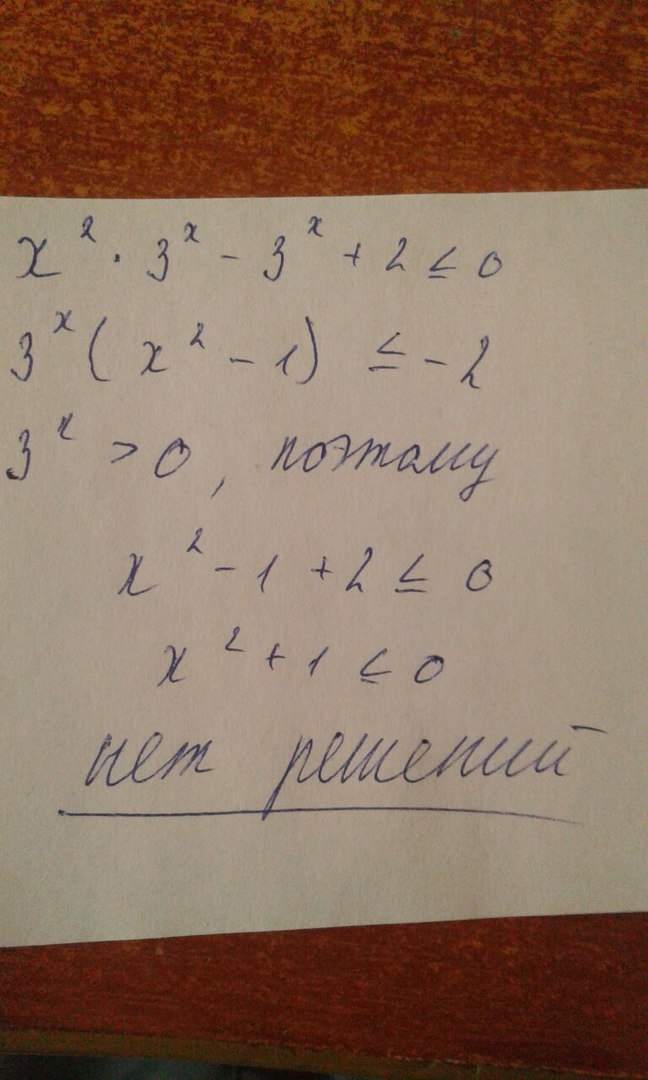 x² · 3ˣ - 3ˣ + 2 ≤ 0
3ˣ( x² - 1) ≤ - 2
3ˣ > 0, поэтому
x² - 1 + 2 ≤ 0
x² + 1 ≤ 0
нет решений